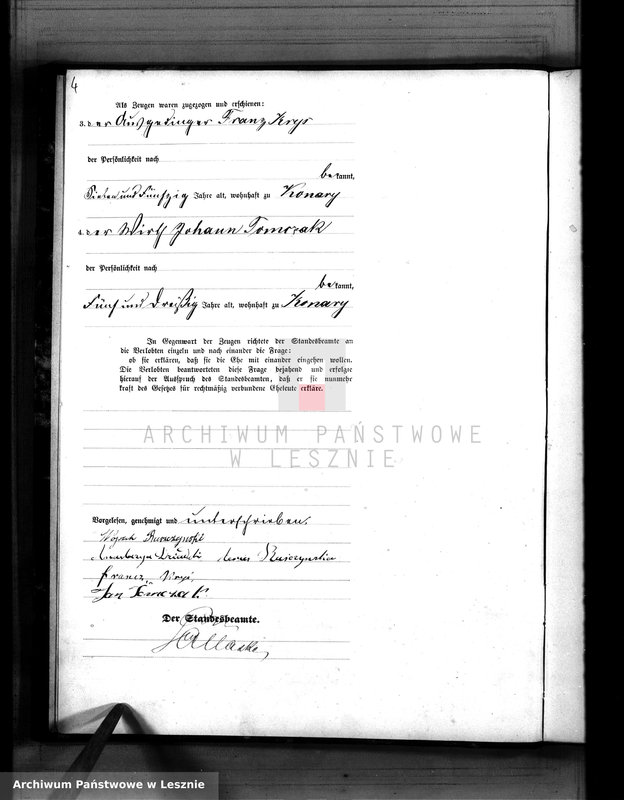 4
Als Zeugen waren zugezogen und erschienen:
3. der Ausgedinger Franz Krys
der Persönlichkeit nach
bekannt,
Sieben und Fünfzig Jahre alt, wohnhaft zu Konary
4. der Wirth Johann Tomczak
der Persönlichkeit nach
bekannt,
Fünf und dreißig Jahre alt, wohnhaft zu Konary
In Gegenwart der Zeugen richtete der Standesbeamte an
die Verlobten einzeln und nach einander die Frage:
ob sie erklären, daß sie die Ehe mit einander eingehen wollen.
Die Verlobten beantworteten diese Frage bejahend und erfolgte
hierauf der Ausspruch des Standesbeamten, daß er sie nunmehr
kraft des Gesetzes für rechtmäßig verbundene Eheleute erkläre.
ARCHIWUM PAŃSTWOWE
W LESZNIE
Vorgelesen, genehmigt und unterschrieben.
Jan Tomczak
Der Standesbeamte.
Archiwum Państwowe w Lesznie